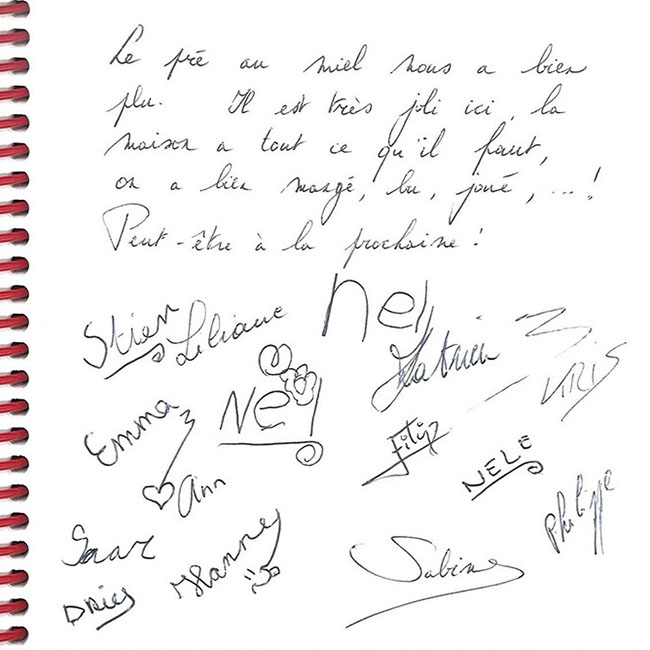 Le pré au miel nous a bien
plu. Il est très joli ici, la
maison a tout ce qu'il faut,
on a bien mangé, bu, joué, ... !
Peut-être à la prochaine !
Stien Liliane
Katrien
KRIS
Emma
Filip
NELE
Ann
Philippe
Hanne
Sabine
Dries